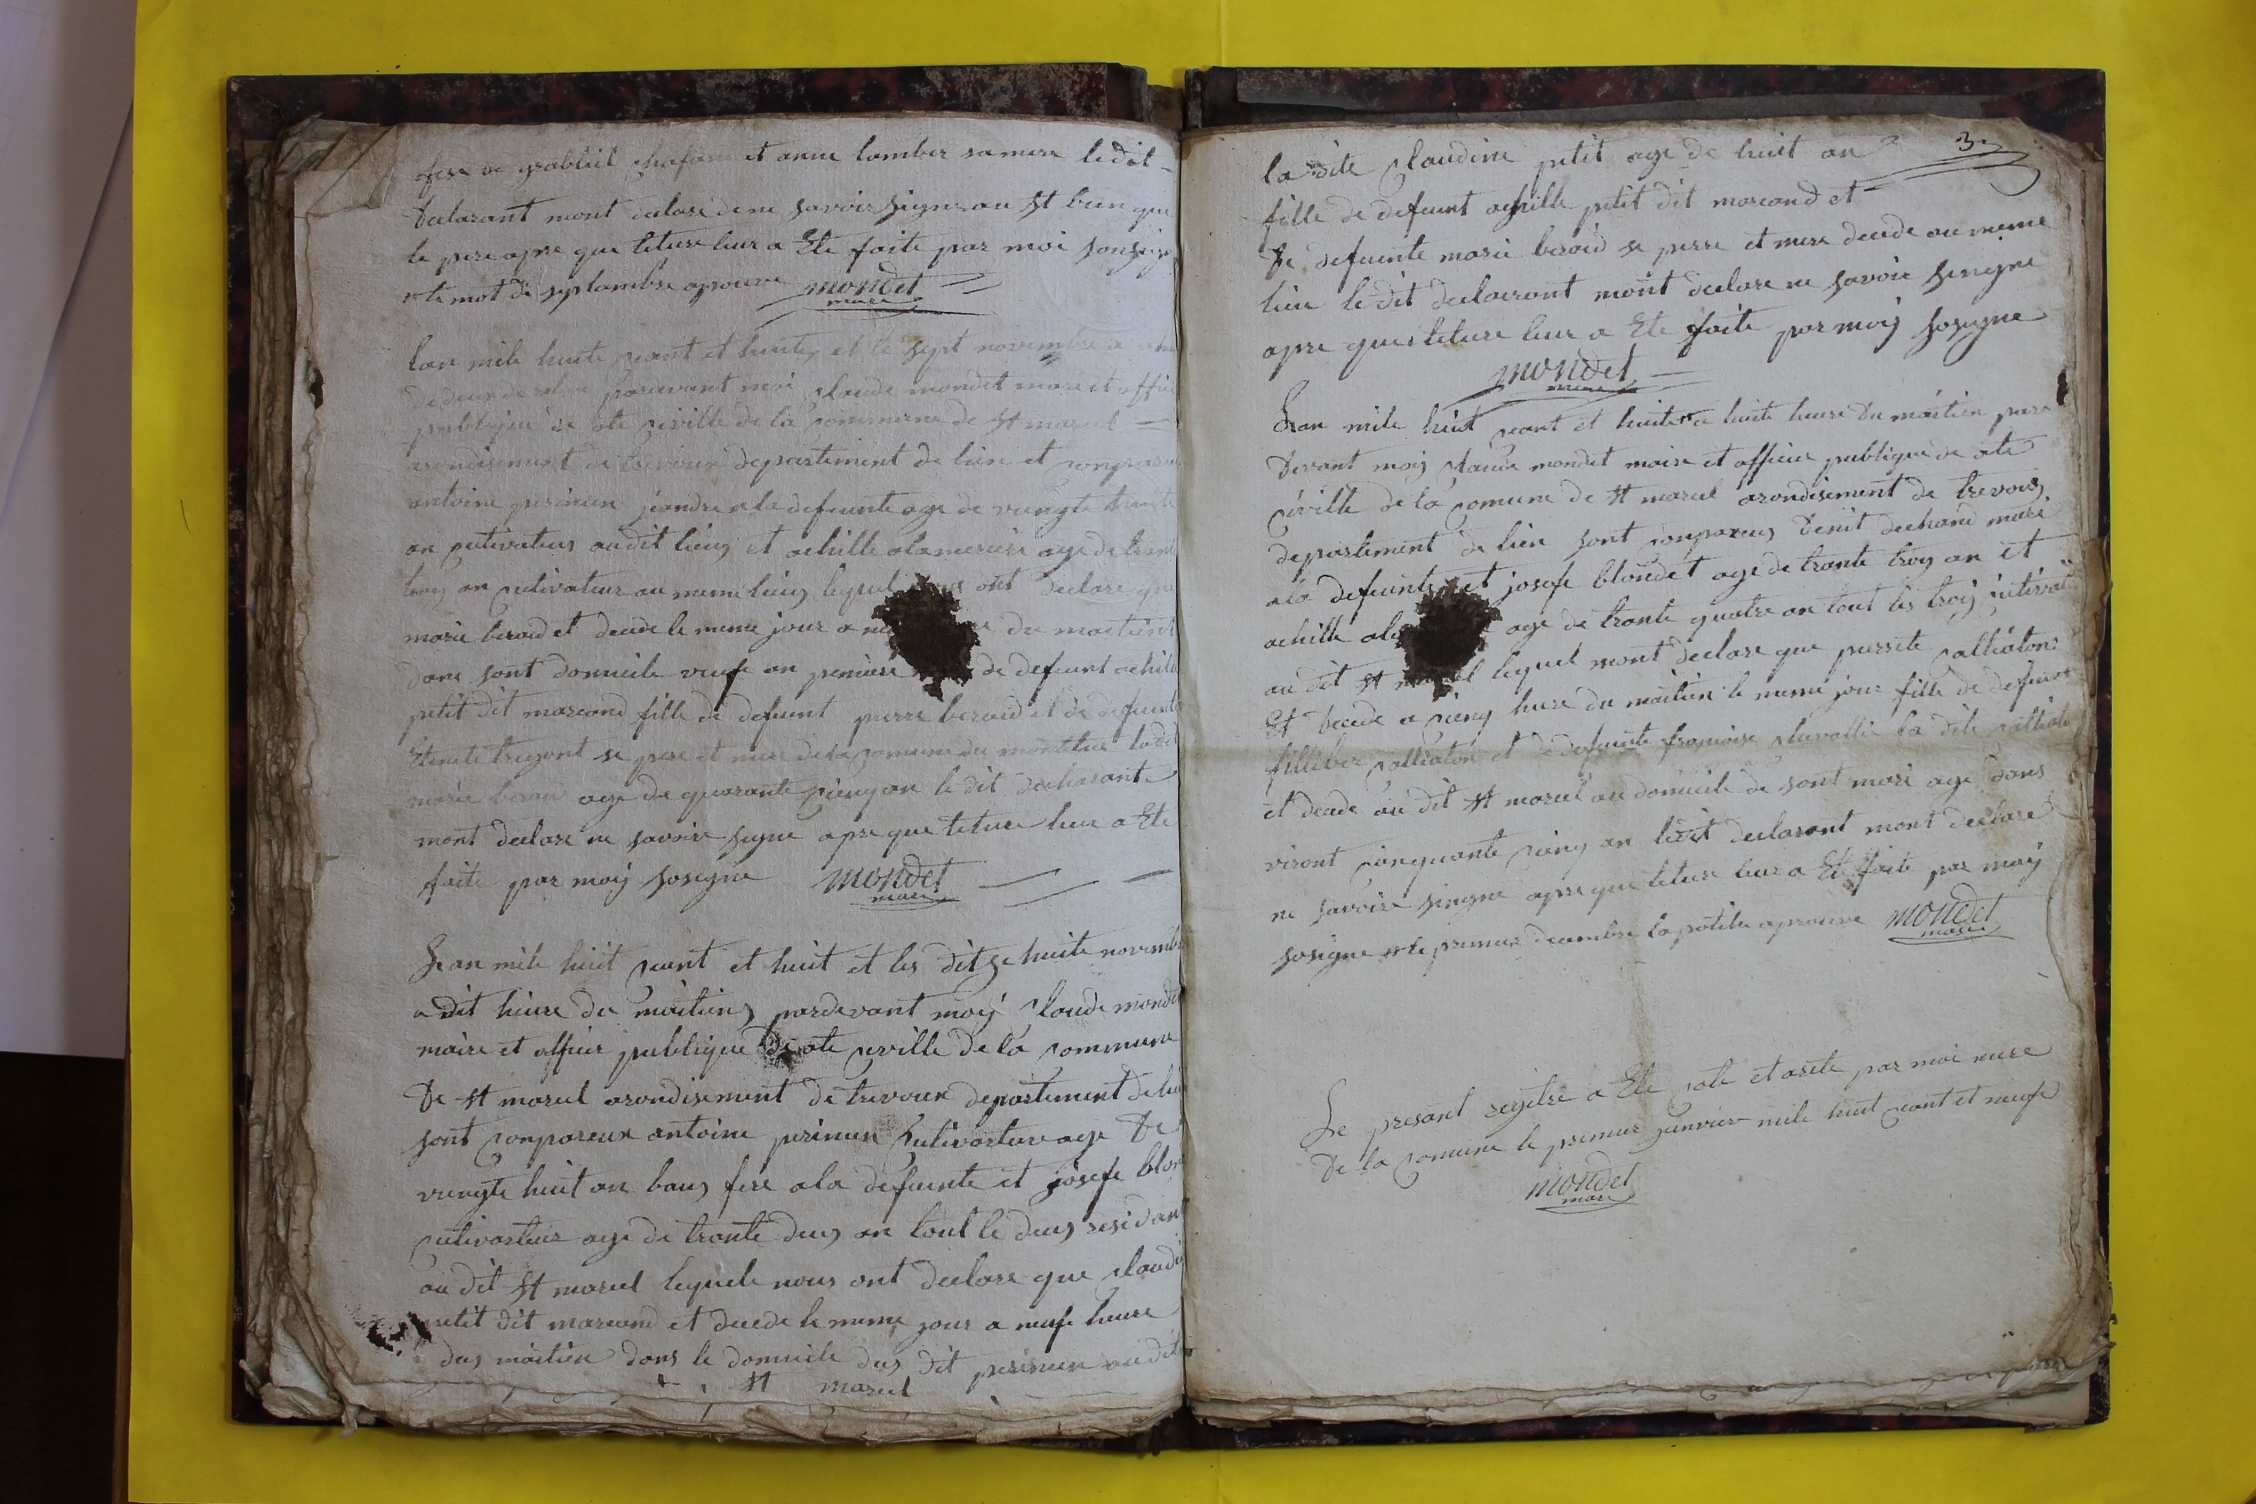 fese de grabliel et anne lamber sa mere le dit
declarant mont declare de ne savoir signe au st bien que
le pere apre que leture leur a Ete faite par moi sousigne
le mot de septambre aprouve mondet
maire
lan mile huite ceant et huite et le sept novembre a
de deux de relve paravant moi claude mondet maire et officie
publique de ate civille de la commune de st marcel
arondisement de trevoux departement de lien et conparu
antoine perinien jeandre a la defeunte age de veingte
an cutivateur au dit lieu et achille alamercier age de trant
troy an cutivateur au meme lieu lequel ont declare que
marie beroud et decede le meme jour a du maitien
dans sont domicile veufe an premiere de defeunt achile
petit dit marcand fille de defeunt pierre beroud et de defeunte
se pere et mere de la comune du montelier la dit
marie beroud age de quarante cienq an le dit declarant
mont declare ne savoir signe apre que leture leur a Ete
faite par moy sosigne mondet
maire
Lan mile huit ceant et huit et les ditze huite novembre
a dit heure du maitien pardevant moy claude mondet
maire et officier publique de ate civille de la commune
de st marcel arondisement de trevoux departement de lien
sont conpareux antoine perinien cutivateure age de
veingte huit an baus fere a la defeunte et josefe blon
cutivateur age de trante deus an tout le deus residan
au dit st marcel lequele nous ont declare que claudi
petit dit marcand et decede le meme jour a neufe heure
dus maitien dans le domicile dus dit perinien au dit
st marcel
3
la dite claudine petit age de huit an
fille de defeunt achille petit dit marcand et
de defeunte marie beroud se perre et mere decede au meme
lieu le dit declarant mont declare ne savoir seingne
apre que leture leur a Ete faite par moy sosigne
mondet
maire
Lan mile huit ceant et huite a huite heure du maitien pare
devant moy claude mondet maire et officier publique de ate
civille de la comune de st marcel arondisement de trevoux
departement de lien sont conpareus denit dechand mari
a la defeunte et josefe blondet age de trante troy an et
achille ala age de trante quatre an tout les troy cutivat
au dit st marcel lequel mont declare que pierrete callhaton
Et decede a cienq heure du maitien le meme jour fille de defeunt
filliber callhaton et de defeunte franсoise chevallie la dite callhato
et decede au dit st marcel au domicile de sont mari age dans
viront cienquante cienq an le dit declarant mont declare
ne savoire seingne apre que leture leur a Ete faite par moy
sosigne le premier decembre la potille aprouve mondet
maire
Le presant regitre a Ete cote et arete par moi mere
de la comune le premier janvier mile huit ceant et neufe
mondet
maire